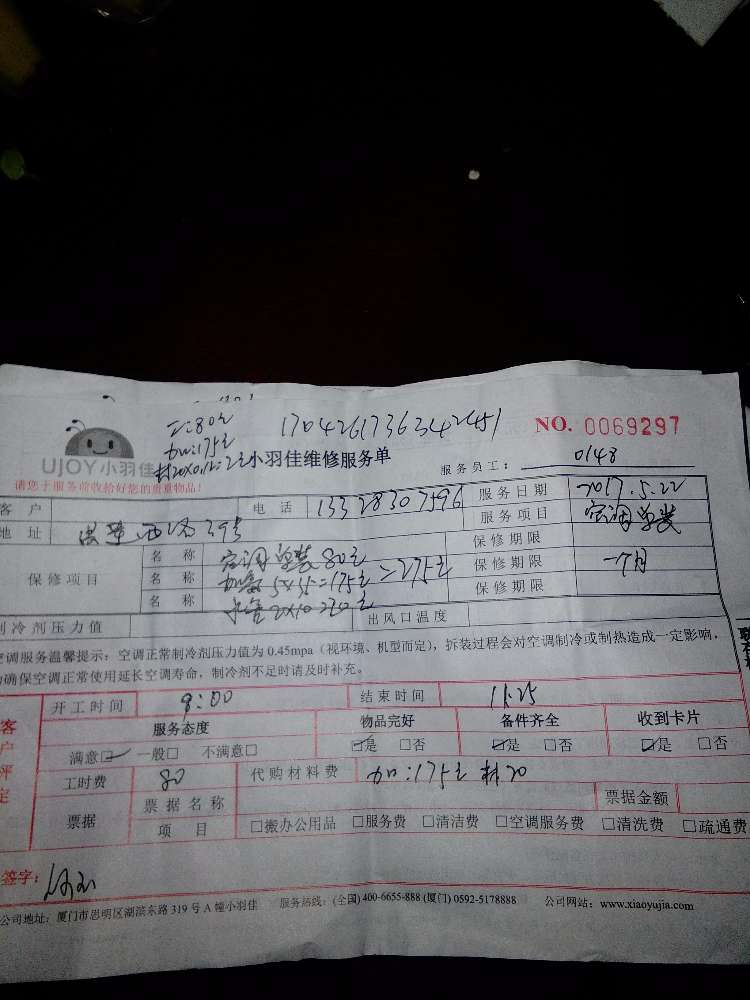 二:80元
1704261736342451
NO. 0069297
加:175元
材20X0.12=2元
UJOY小羽佳
小羽佳维修服务单
服务员工: 0148
请您于服务前收拾好您的贵重物品!
客户 电话 13328307596 服务日期 2017.5.22
地址 西路39号 服务项目 空调单装
保修期限
保修项目 名称 空调单装80元 =275元 保修期限 一个月
名称 5X35=175元 保修期限
名称 2X10=20元
制冷剂压力值 出风口温度
空调服务温馨提示:空调正常制冷剂压力值为 0.45mpa(视环境、机型而定),拆装过程会对空调制冷或制热造成一定影响,
为确保空调正常使用延长空调寿命,制冷剂不足时请及时补充。
客户评定
开工时间 9:00 结束时间 11:25
服务态度 物品完好 备件齐全 收到卡片
满意☑ 一般□ 不满意□ ☑是 □否 ☑是 □否 ☑是 □否
工时费 80 代购材料费 加:175元 材20
票据 票据名称 票据金额
项目 □搬办公用品 □服务费 □清洁费 □空调服务费 □清洗费 □疏通费
签字:
公司地址:厦门市思明区湖滨东路 319 号 A 幢小羽佳 服务热线:(全国) 400-6655-888 (厦门) 0592-5178888 公司网站:www.xiaoyujia.com